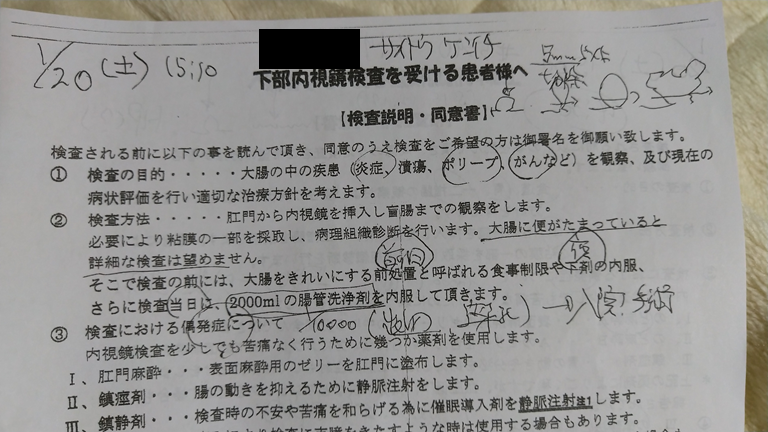 1/20(土) 15:10
サイトウ ケンイチ
下部内視鏡検査を受ける患者様へ
【検査説明・同意書】
検査される前に以下の事を読んで頂き、同意のうえ検査をご希望の方は御署名を御願い致します。
① 検査の目的・・・・・大腸の中の疾患(炎症、潰瘍、ポリープ、がんなど)を観察、及び現在の
病状評価を行い適切な治療方針を考えます。
② 検査方法・・・・・肛門から内視鏡を挿入し盲腸までの観察をします。
必要により粘膜の一部を採取し、病理組織診断を行います。大腸に便がたまっていると
詳細な検査は望めません。
前日
そこで検査の前には、大腸をきれいにする前処置と呼ばれる食事制限や下剤の内服、
さらに検査当日は、2000mlの腸管洗浄剤を内服して頂きます。
③ 検査における偶発症について 1/10000 → 入院 手術
内視鏡検査を少しでも苦痛なく行うために幾つか薬剤を使用します。
Ⅰ、肛門麻酔・・・表面麻酔用のゼリーを肛門に塗布します。
Ⅱ、鎮痙剤・・・腸の動きを抑えるために静脈注射をします。
Ⅲ、鎮静剤・・・検査時の不安や苦痛を和らげる為に催眠導入剤を静脈注射注1します。